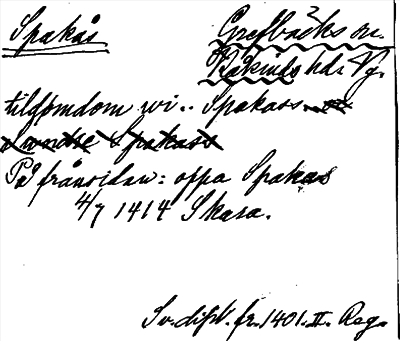 Spakås
Grefbäcks sn.
Kåkinds hd. Vg.
tilgømdom wi .. Spakass
Swndre Spakass
På frånsidan: oppa Spakas
4/7 1414 Skara.
Sv. dipl. fr. 1401. II. Reg.